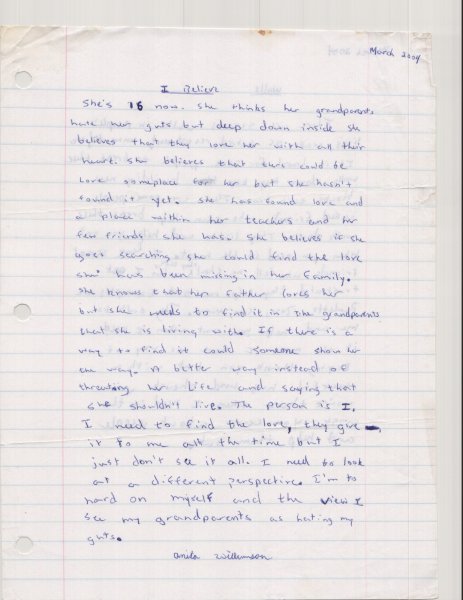 March 2004
I Believe
She's 16 now. She thinks her grandparents
hate her guts but deep down inside she
believes that they love her with all their
heart. She believes that there could be
love someplace for her but she hasn't
found it yet. She has found love and
a place within her teachers and her
few friends she has. She believes if she
goes searching she could find the love
she has been missing in her family.
She knows that her father loves her
but she needs to find it in the grandparents
that she is living with. If there is a
way to find it could someone show her
one way. A better way instead of
threating her life and saying that
she shouldn't live. The person is I.
I need to find the love, they give
it to me all the time but I
just don't see it all. I need to look
at a different perspective. I'm to
hard on myself and the view I
see my grandparents as hating my
guts.
Anita Williamson